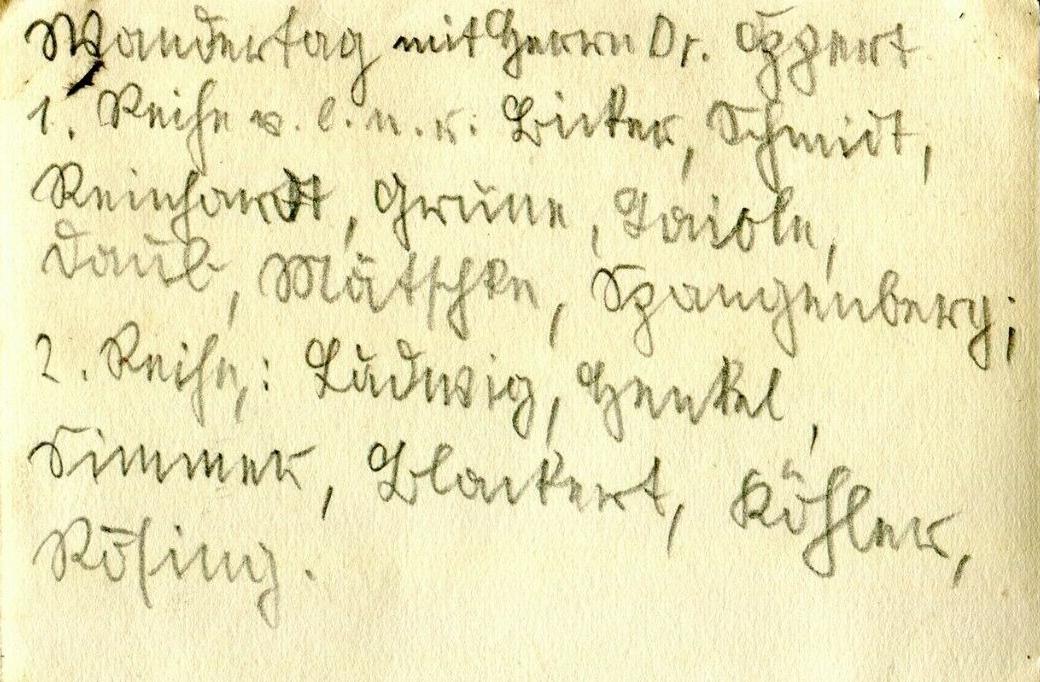 Wandertag mit Herrn Dr. Oppert
1. Reihe v. l. n. r. Bicker, Schmidt,
Reinhardt, Grüne,
Daub, Mätschke, Spangenberg;
2. Reihe,: Ludwig, Henkel,
Simmer, Blackert, Köhler,
Rösing.